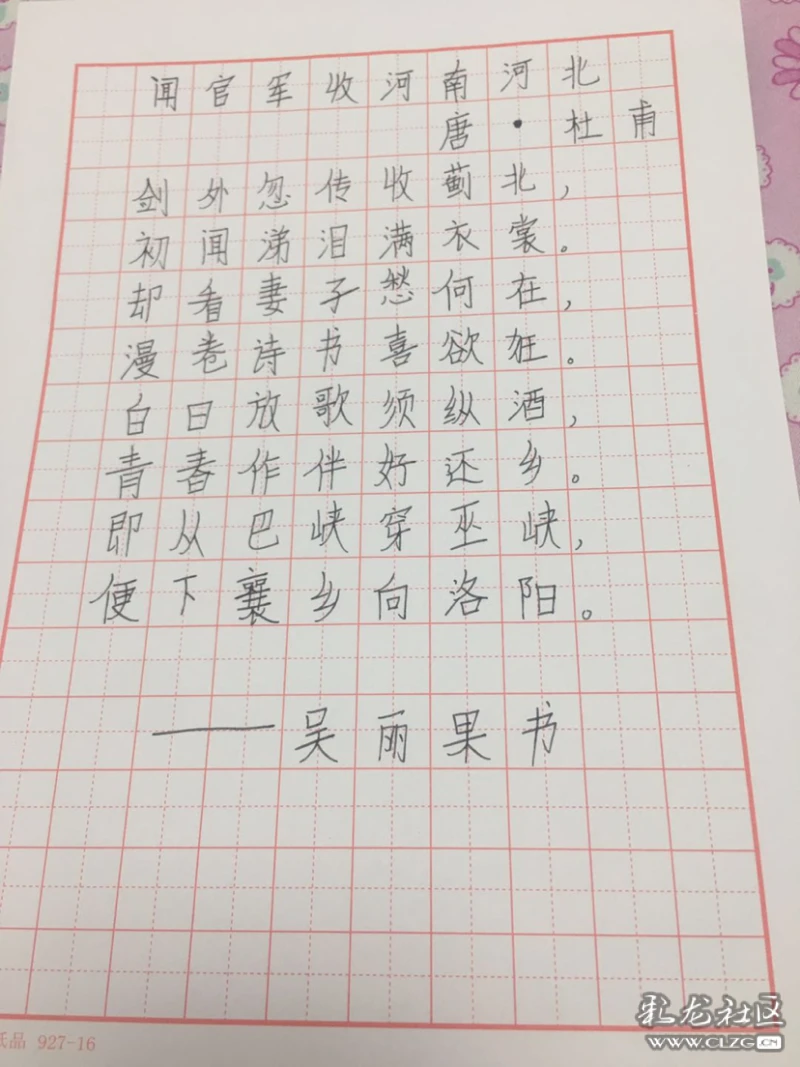 闻官军收河南河北
唐·杜甫
剑外忽传收蓟北，
初闻涕泪满衣裳。
却看妻子愁何在，
漫卷诗书喜欲狂。
白日放歌须纵酒，
青春作伴好还乡。
即从巴峡穿巫峡，
便下襄乡向洛阳。
——吴丽果书
纸品 927-16
彩龙社区
WWW.CLZG.CN